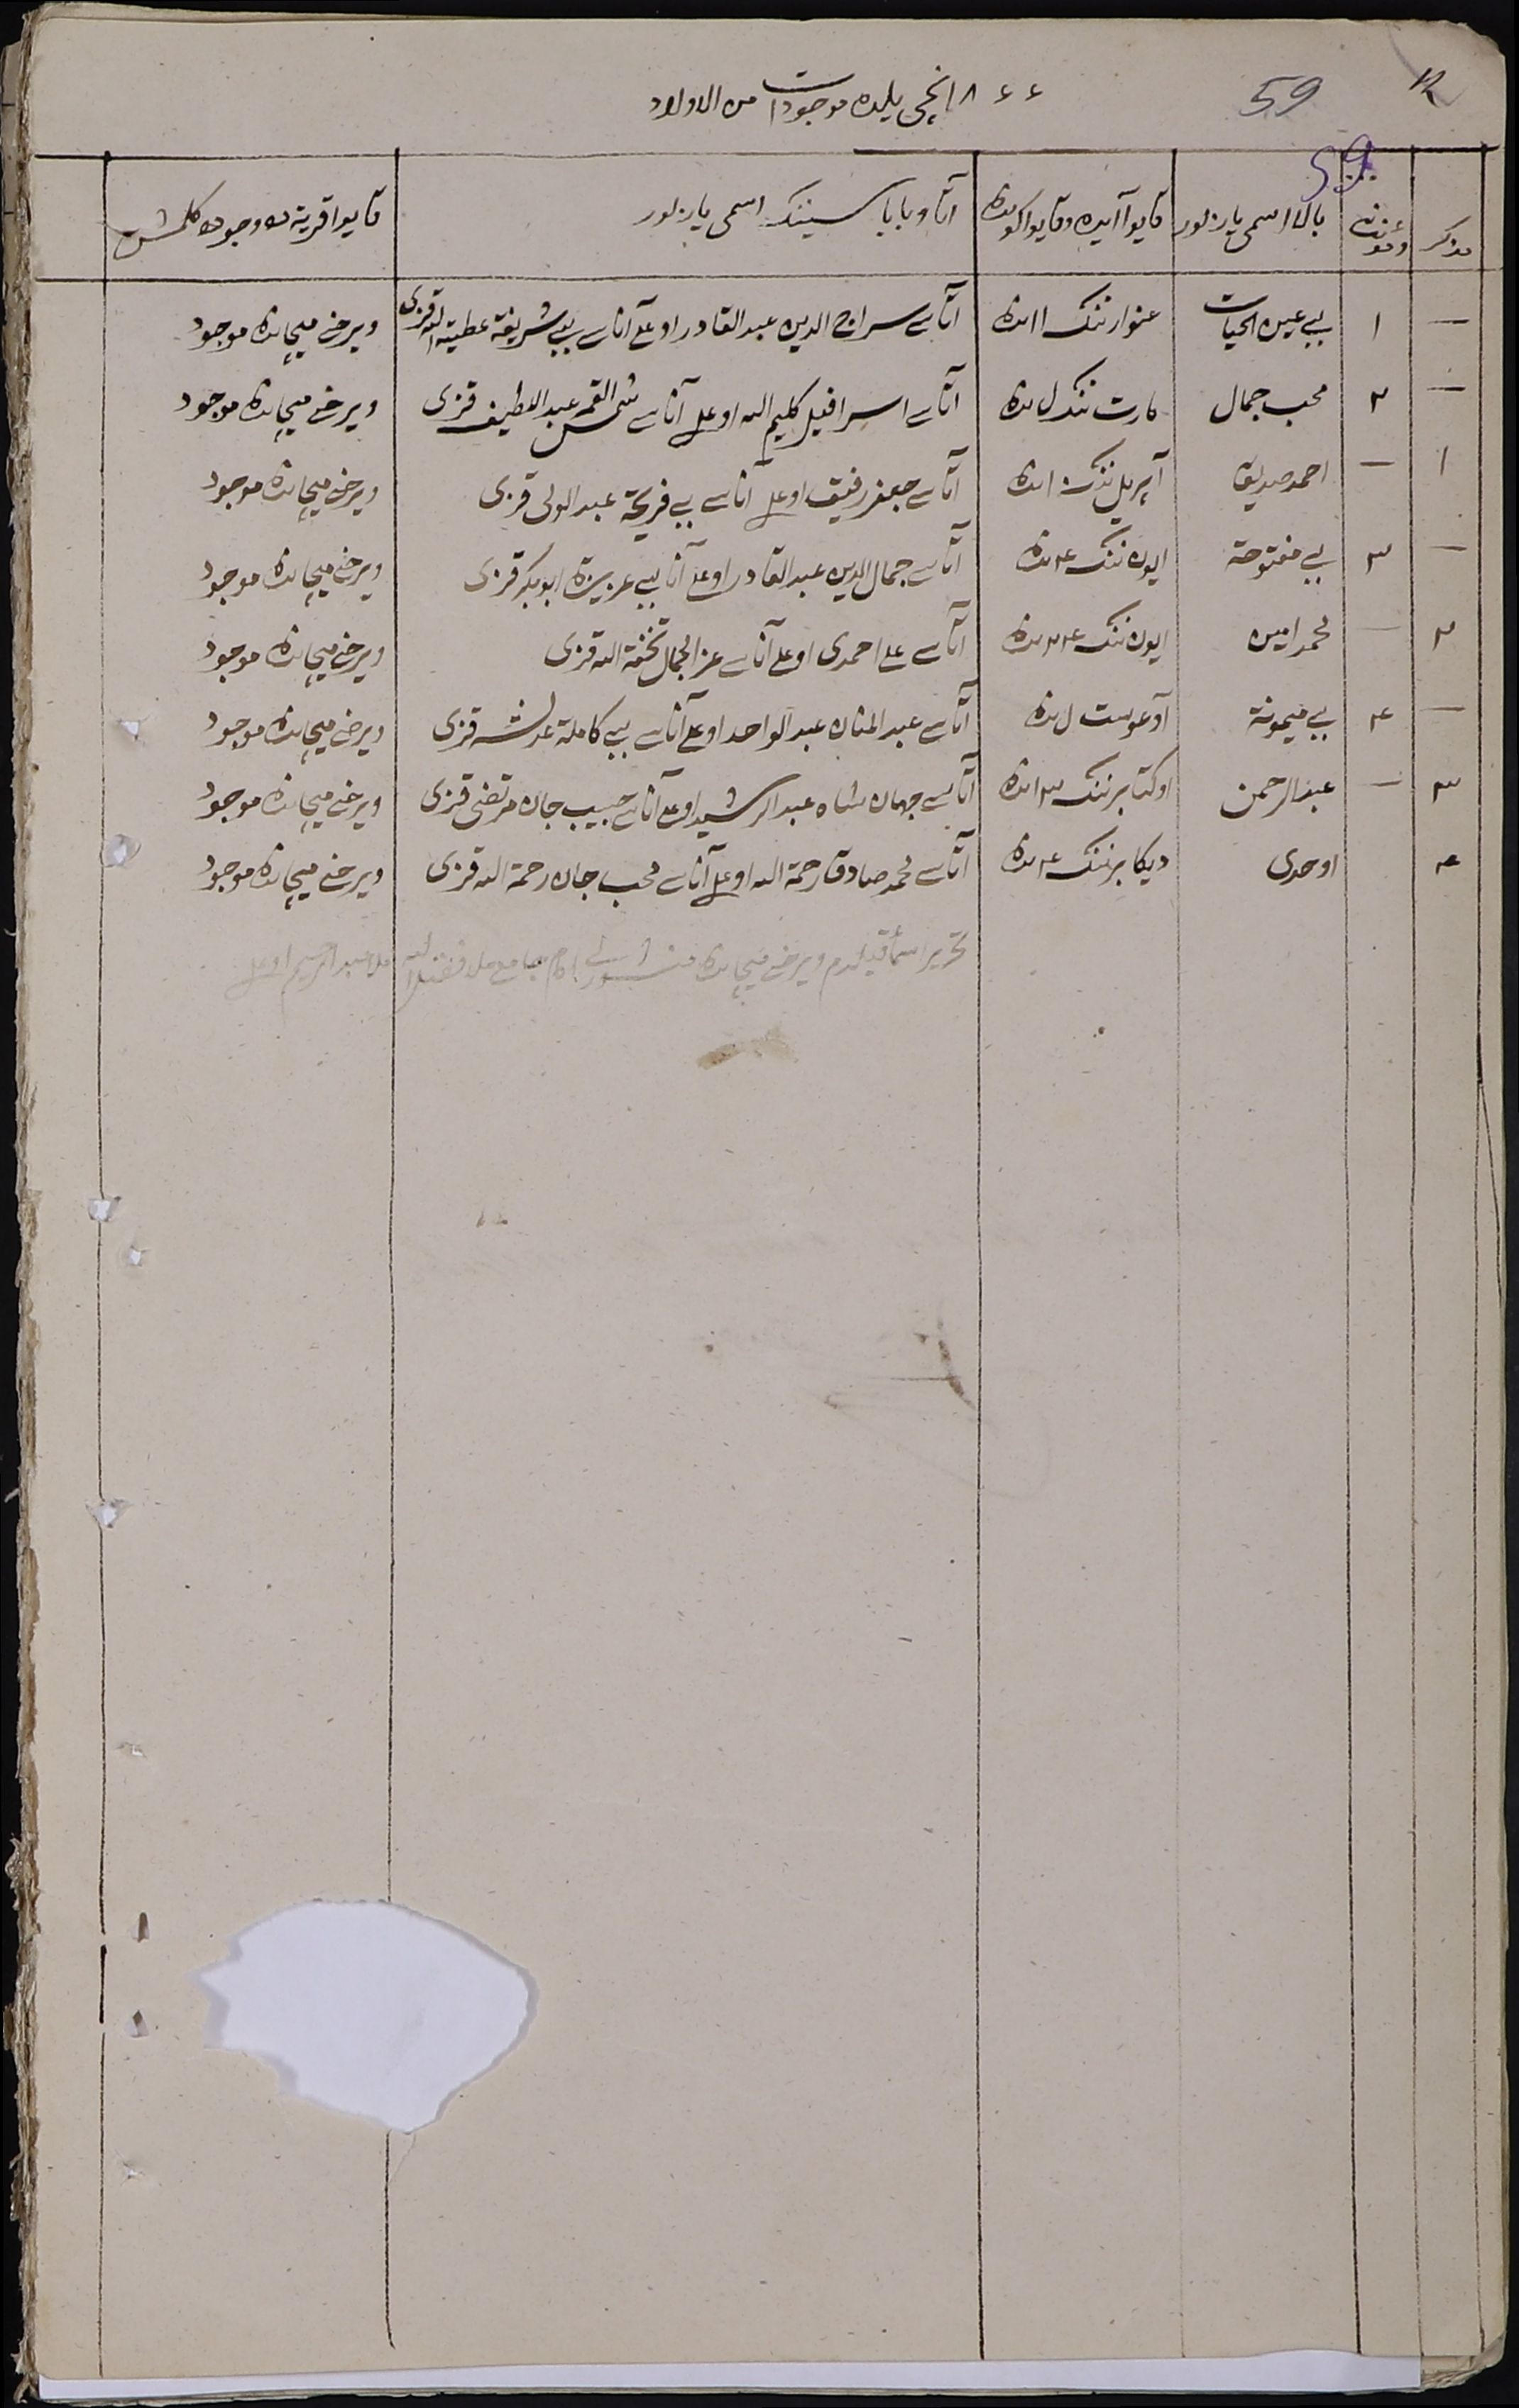 59
۱۸۶۶ انچی یلده موجودات من الاولاد
59
مذکر
مؤنث
بالا اسمی یازلور
قایو آیده و قایو کونده
آتا و باباسیننک اسمی یازلور
قایو قریه ده وجوده کلمش
— ۱ بی بی عین الحیات غنوارننک ۱۱ نده آتاسی سراج الدین عبدالقادر اوغلی آناسی بی بی شریفة عطیة الله قزی ویرخنی میچانده موجود
— ۲ محب جمال مارت ننک نده آتاسی اسرافیل کلیم الله اوغلی آناسی شمس القمر عبداللطیف قزی ویرخنی میچانده موجود
۱ — احمد صدیق آپریل ننک ۱ نده آتاسی جعفر رفیق اوغلی آناسی بی بی فریحة عبدالولی قزی ویرخنی میچانده موجود
— ۳ بی بی مفتوحة ایون ننک ۴ نده آتاسی جمال الدین عبدالقادر اوغلی آناسی بی بی عزیزة ابوبکر قزی ویرخنی میچانده موجود
۲ — محمد امین ایون ننک ۲۴ نده آتاسی علی احمدی اوغلی آناسی عزالجمال تحفة الله قزی ویرخنی میچانده موجود
— ۴ بی بی میمونة آوغوست نده آتاسی عبدالمنان عبدالواحد اوغلی آناسی بی بی کاملة قزی ویرخنی میچانده موجود
۳ — عبدالرحمن اوکتابرننک ۱۳ نده آتاسی جهان شاه عبدالرشید اوغلی آناسی حبیب جان مرتضی قزی ویرخنی میچانده موجود
۴ اوحدی دیکابرننک ۴ نده آتاسی محمد صادق رحمة الله اوغلی آناسی محب جان رحمة الله قزی ویرخنی میچانده موجود
تحریر اسما قیلدم ویرخنی میچانده امام جامع ملا فضل الله ملا عبدالرحیم اوغلی